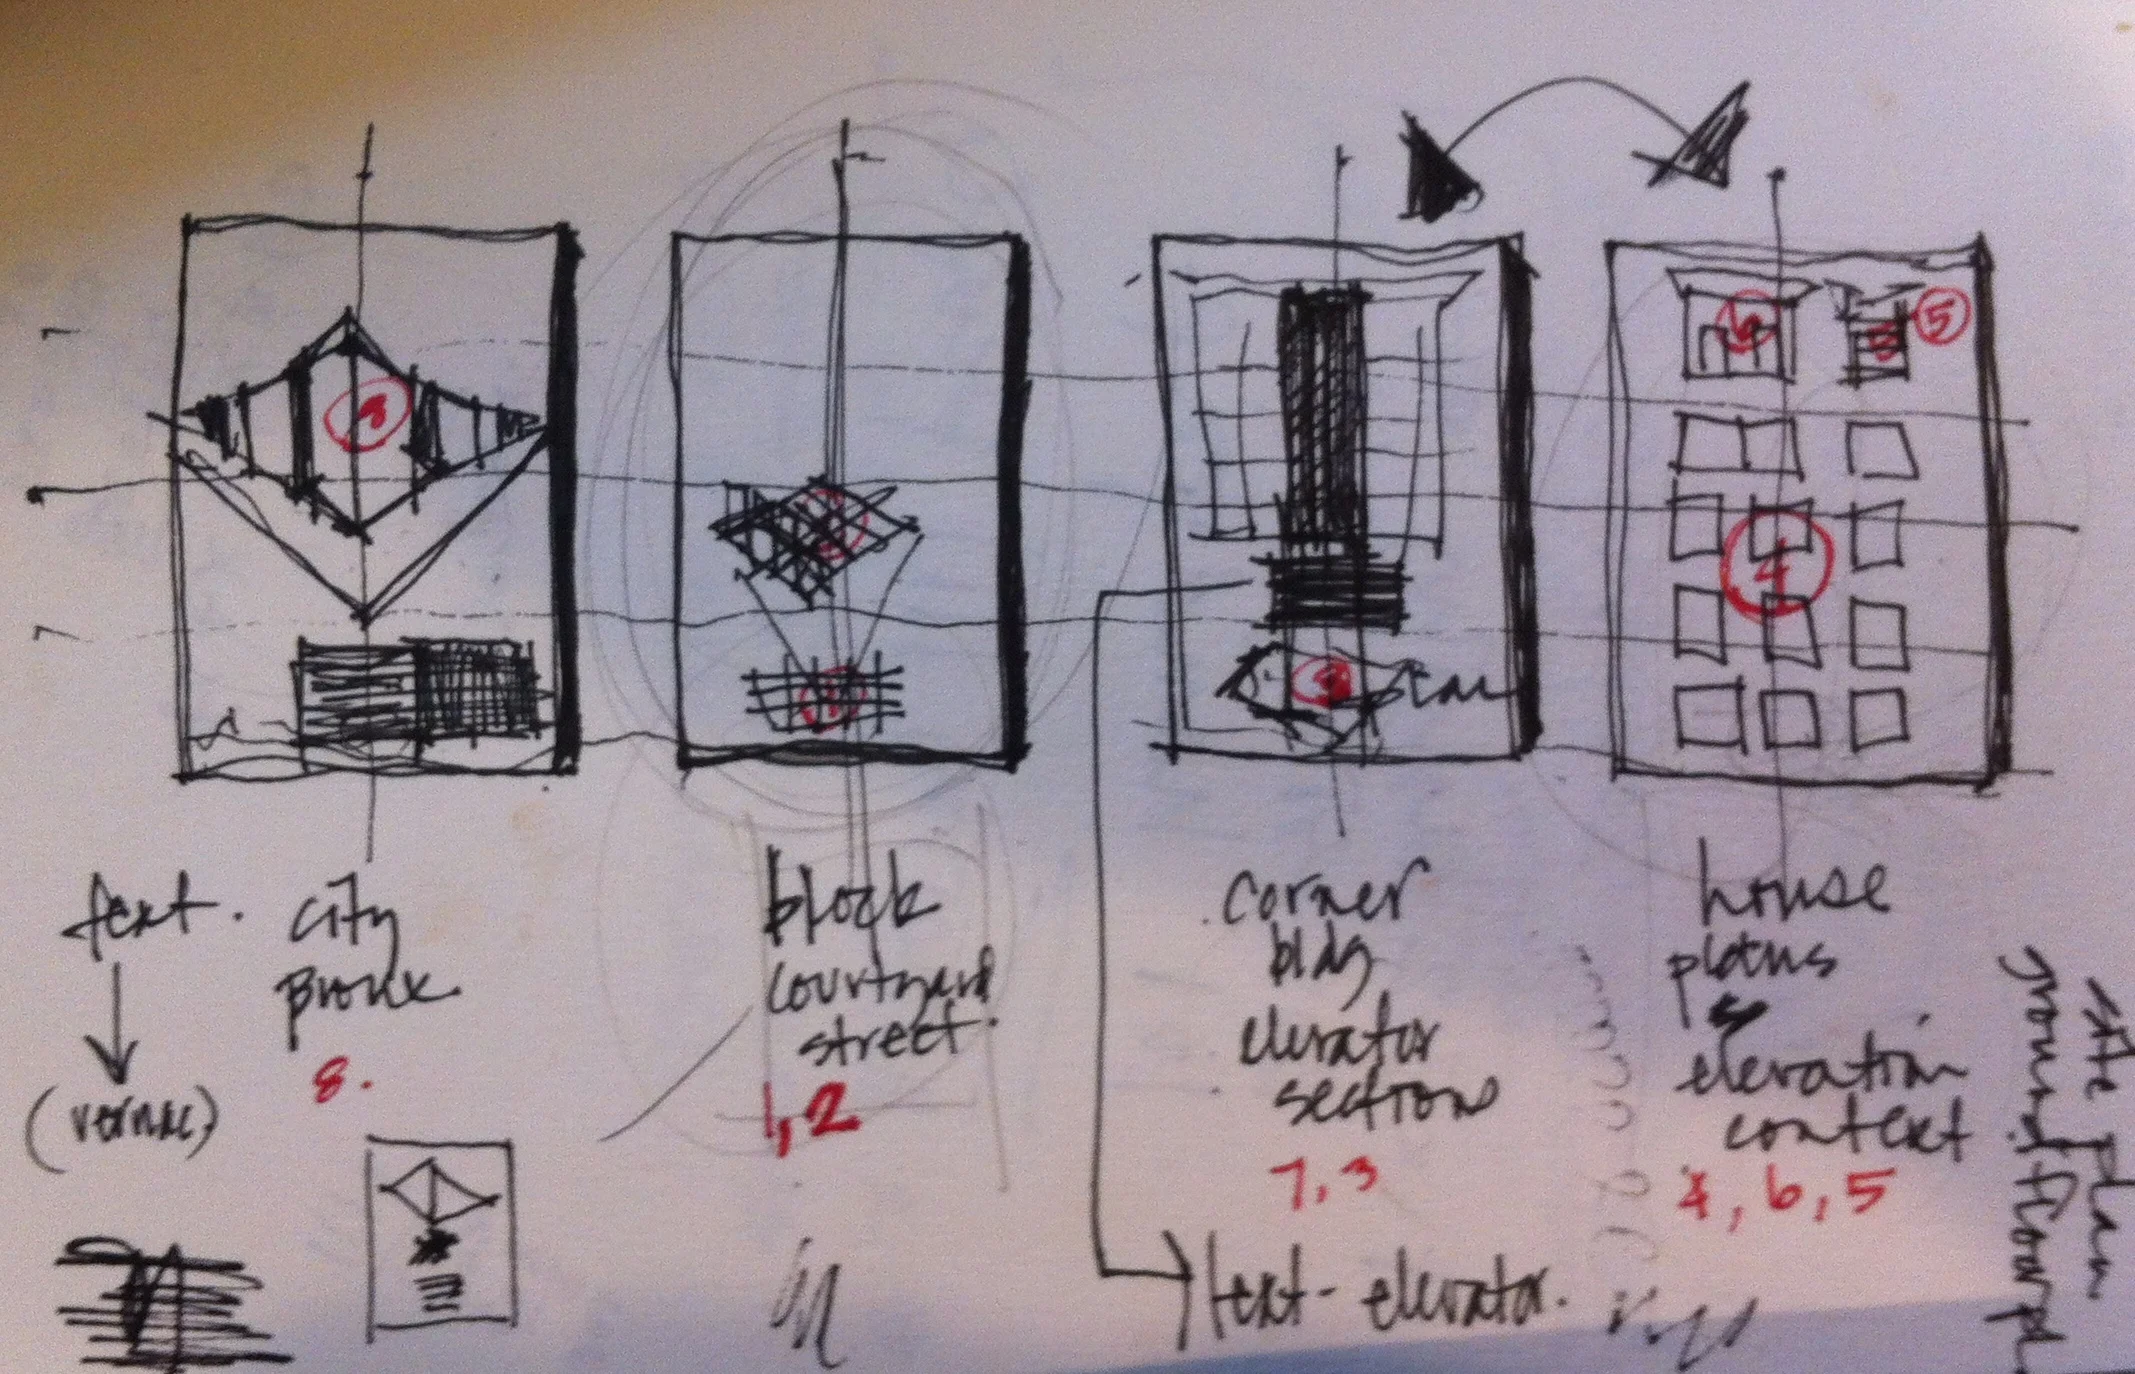 8
2
1
3
6
5
4
text.
(vernac)
city
Bronx
8.
block
courtyard
street.
1,2
corner
bldg
elevator
sections
7,3
text- elevator.
house
elevation
context
4,6,5
site plan